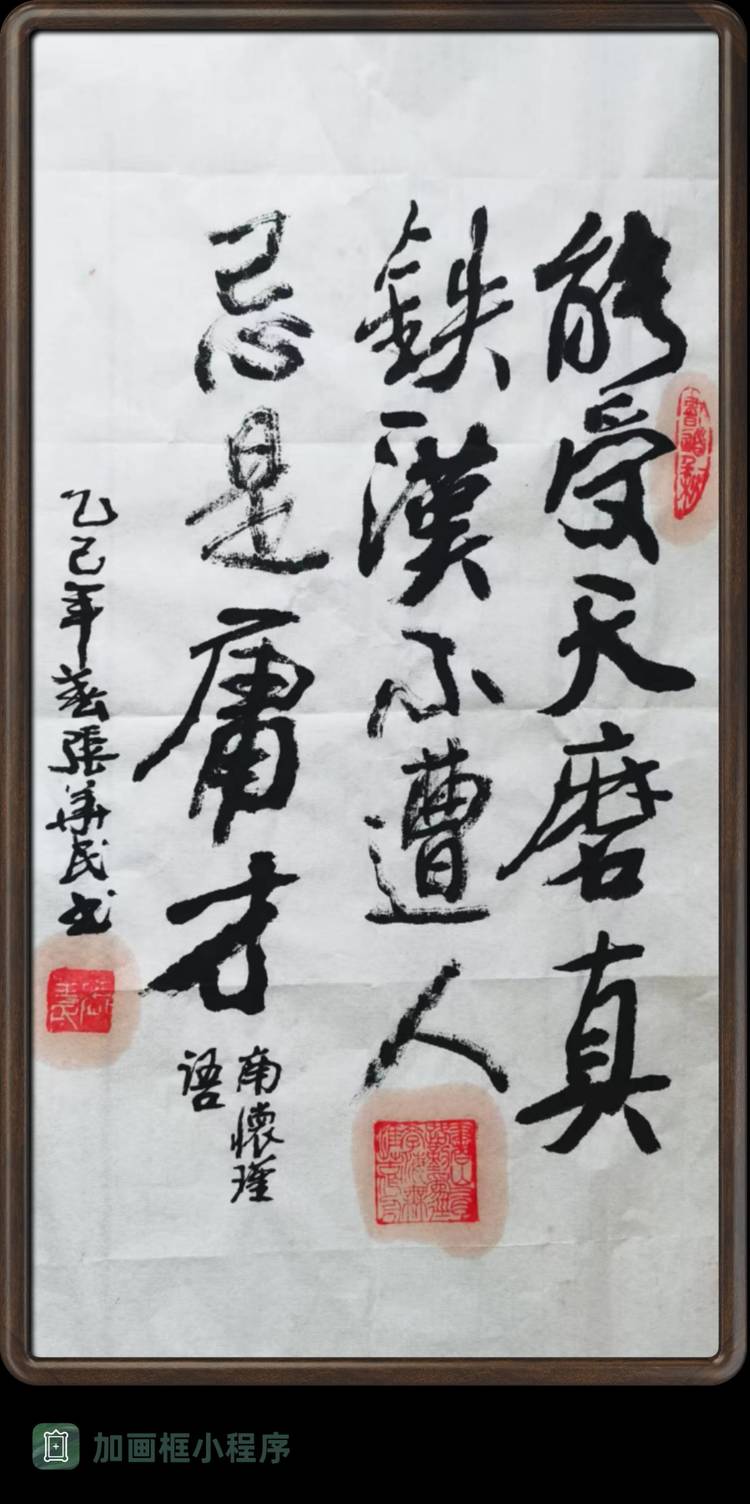 能受天磨真
鉄漢不遭人
忌是庸才
南懷瑾
語
乙己年春張華民书
加画框小程序